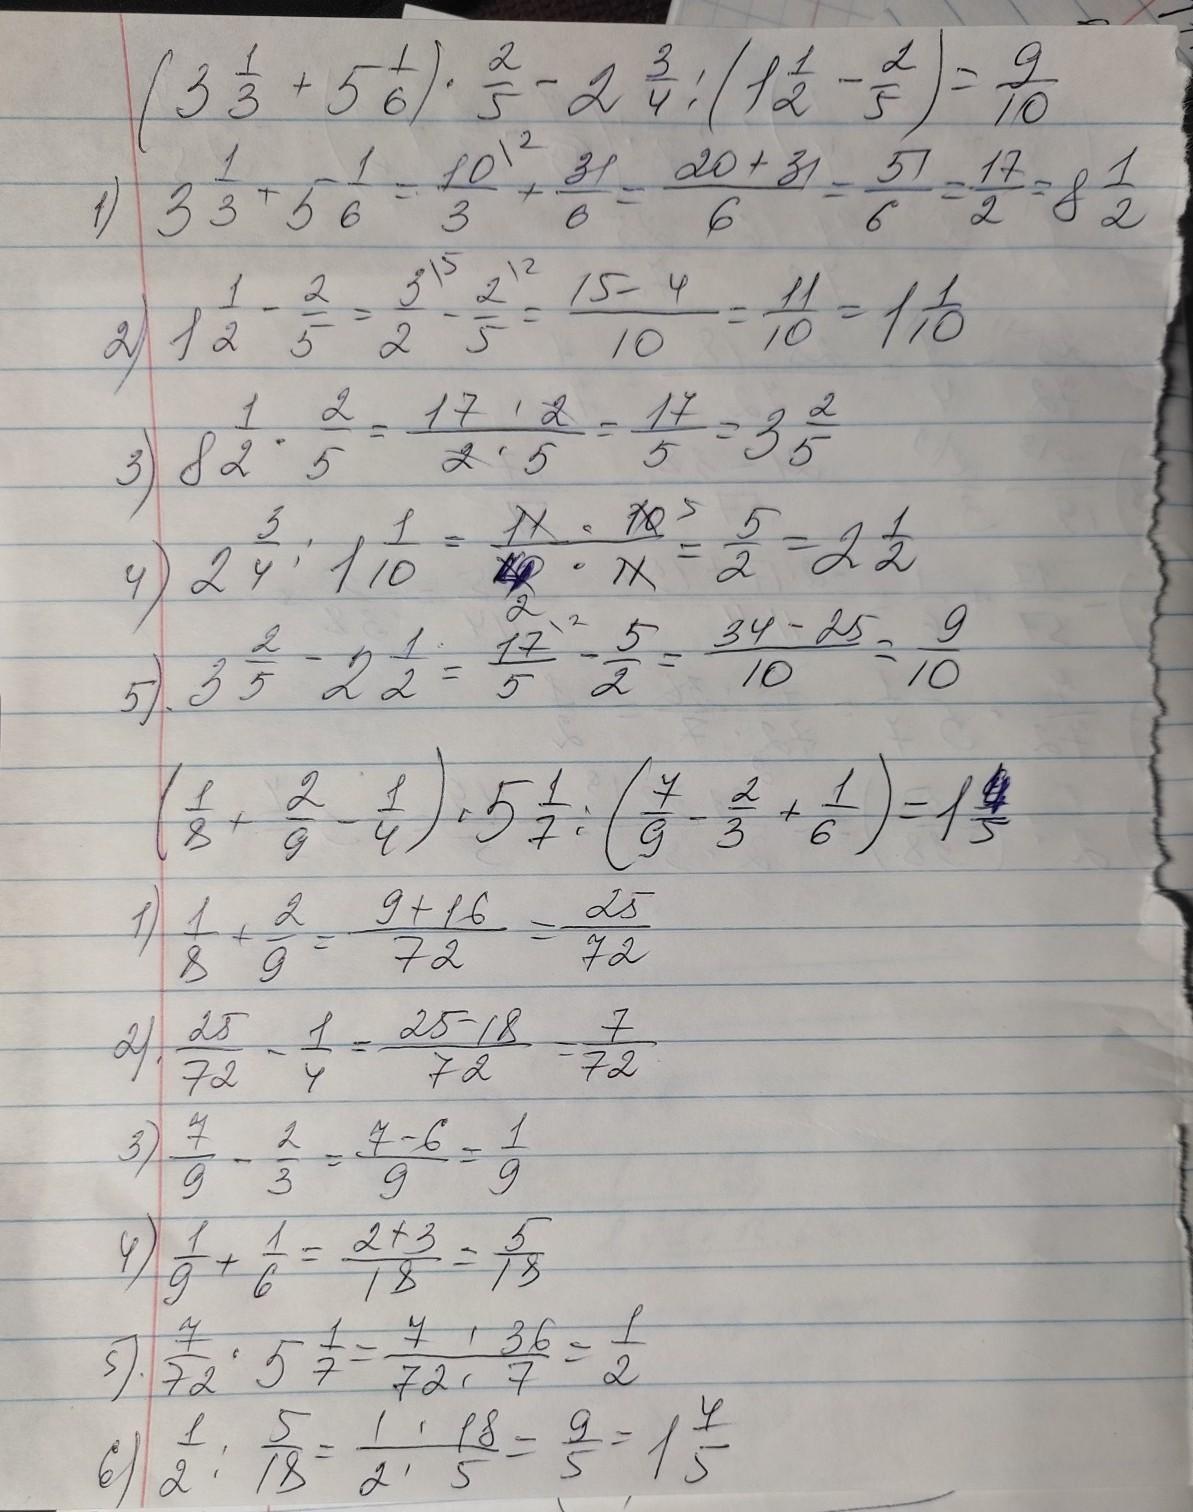 (3 1/3 + 5 1/6) · 2/5 - 2 3/4 : (1 1/2 - 2/5) = 9/10
1) 3 1/3 + 5 1/6 = 10\2/3 + 31/6 = 20+31/6 = 51/6 = 17/2 = 8 1/2
2) 1 1/2 - 2/5 = 3\5/2 - 2\2/5 = 15-4/10 = 11/10 = 1 1/10
3) 8 1/2 · 2/5 = 17·2/2·5 = 17/5 = 3 2/5
4) 2 3/4 : 1 1/10 = 11·10 5/2·11 = 5/2 = 2 1/2
5). 3 2/5 - 2 1/2 = 17\2/5 - 5/2 = 34-25/10 = 9/10
(1/8 + 2/9 - 1/4) · 5 1/7 : (7/9 - 2/3 + 1/6) = 1 4/5
1) 1/8 + 2/9 = 9+16/72 = 25/72
2). 25/72 - 1/4 = 25-18/72 = 7/72
3) 7/9 - 2/3 = 7-6/9 = 1/9
4) 1/9 + 1/6 = 2+3/18 = 5/18
5). 7/72 · 5 1/7 = 7·36/72·7 = 1/2
6) 1/2 : 5/18 = 1·18/2·5 = 9/5 = 1 4/5